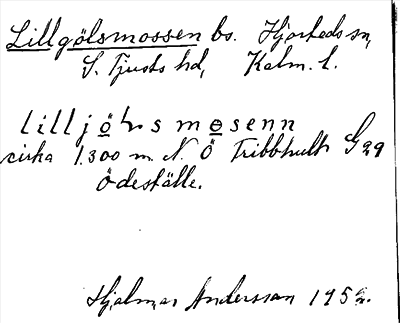 Lillgölsmossen bs. Hjorteds sn,
S. Tjusts hd, Kalm. l.
lilljöls mosenn
cirka 1.300 m. N. Ö Tribbhult G 29
Ödeställe.
Hjalmar Andersson 195